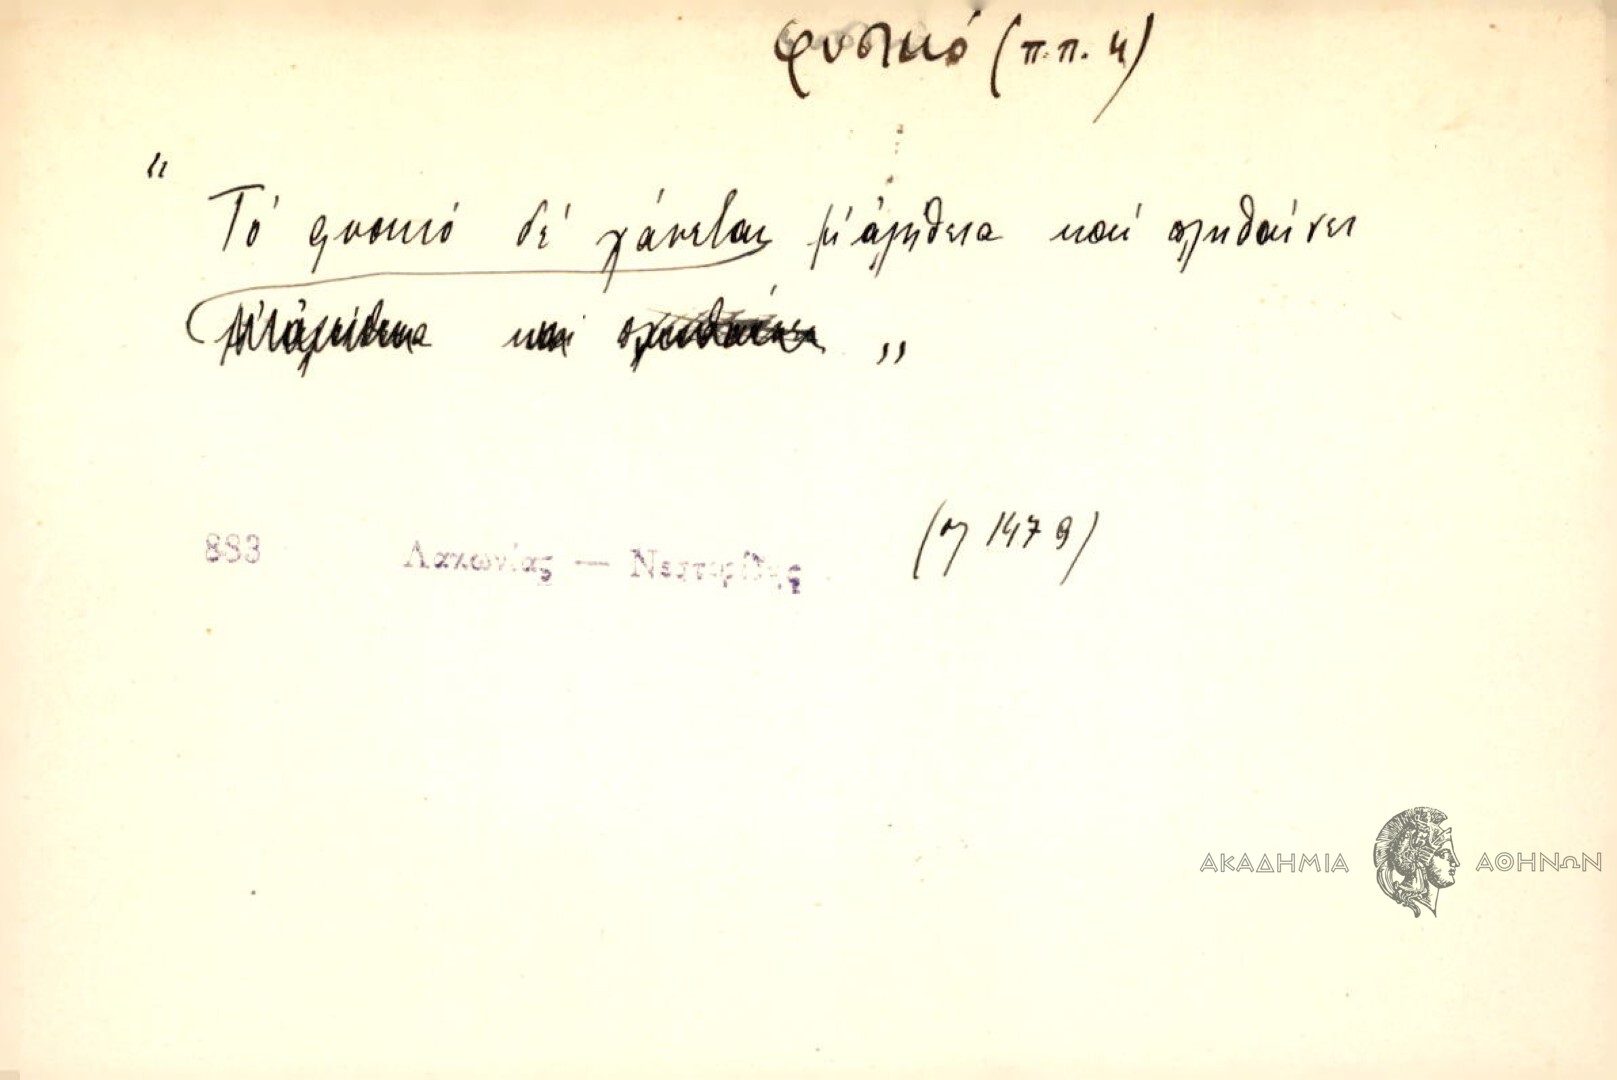 φυσικό (π.π. 4)
"
Τό φυσικό δέ χάνεται μ' ἀλήθεια καί πληθαίνει
καί „
883 Λακωνίας — Νεστορίδης (σ 1479)
ΑΚΑΔΗΜΙΑ ΑΘΗΝΩΝ